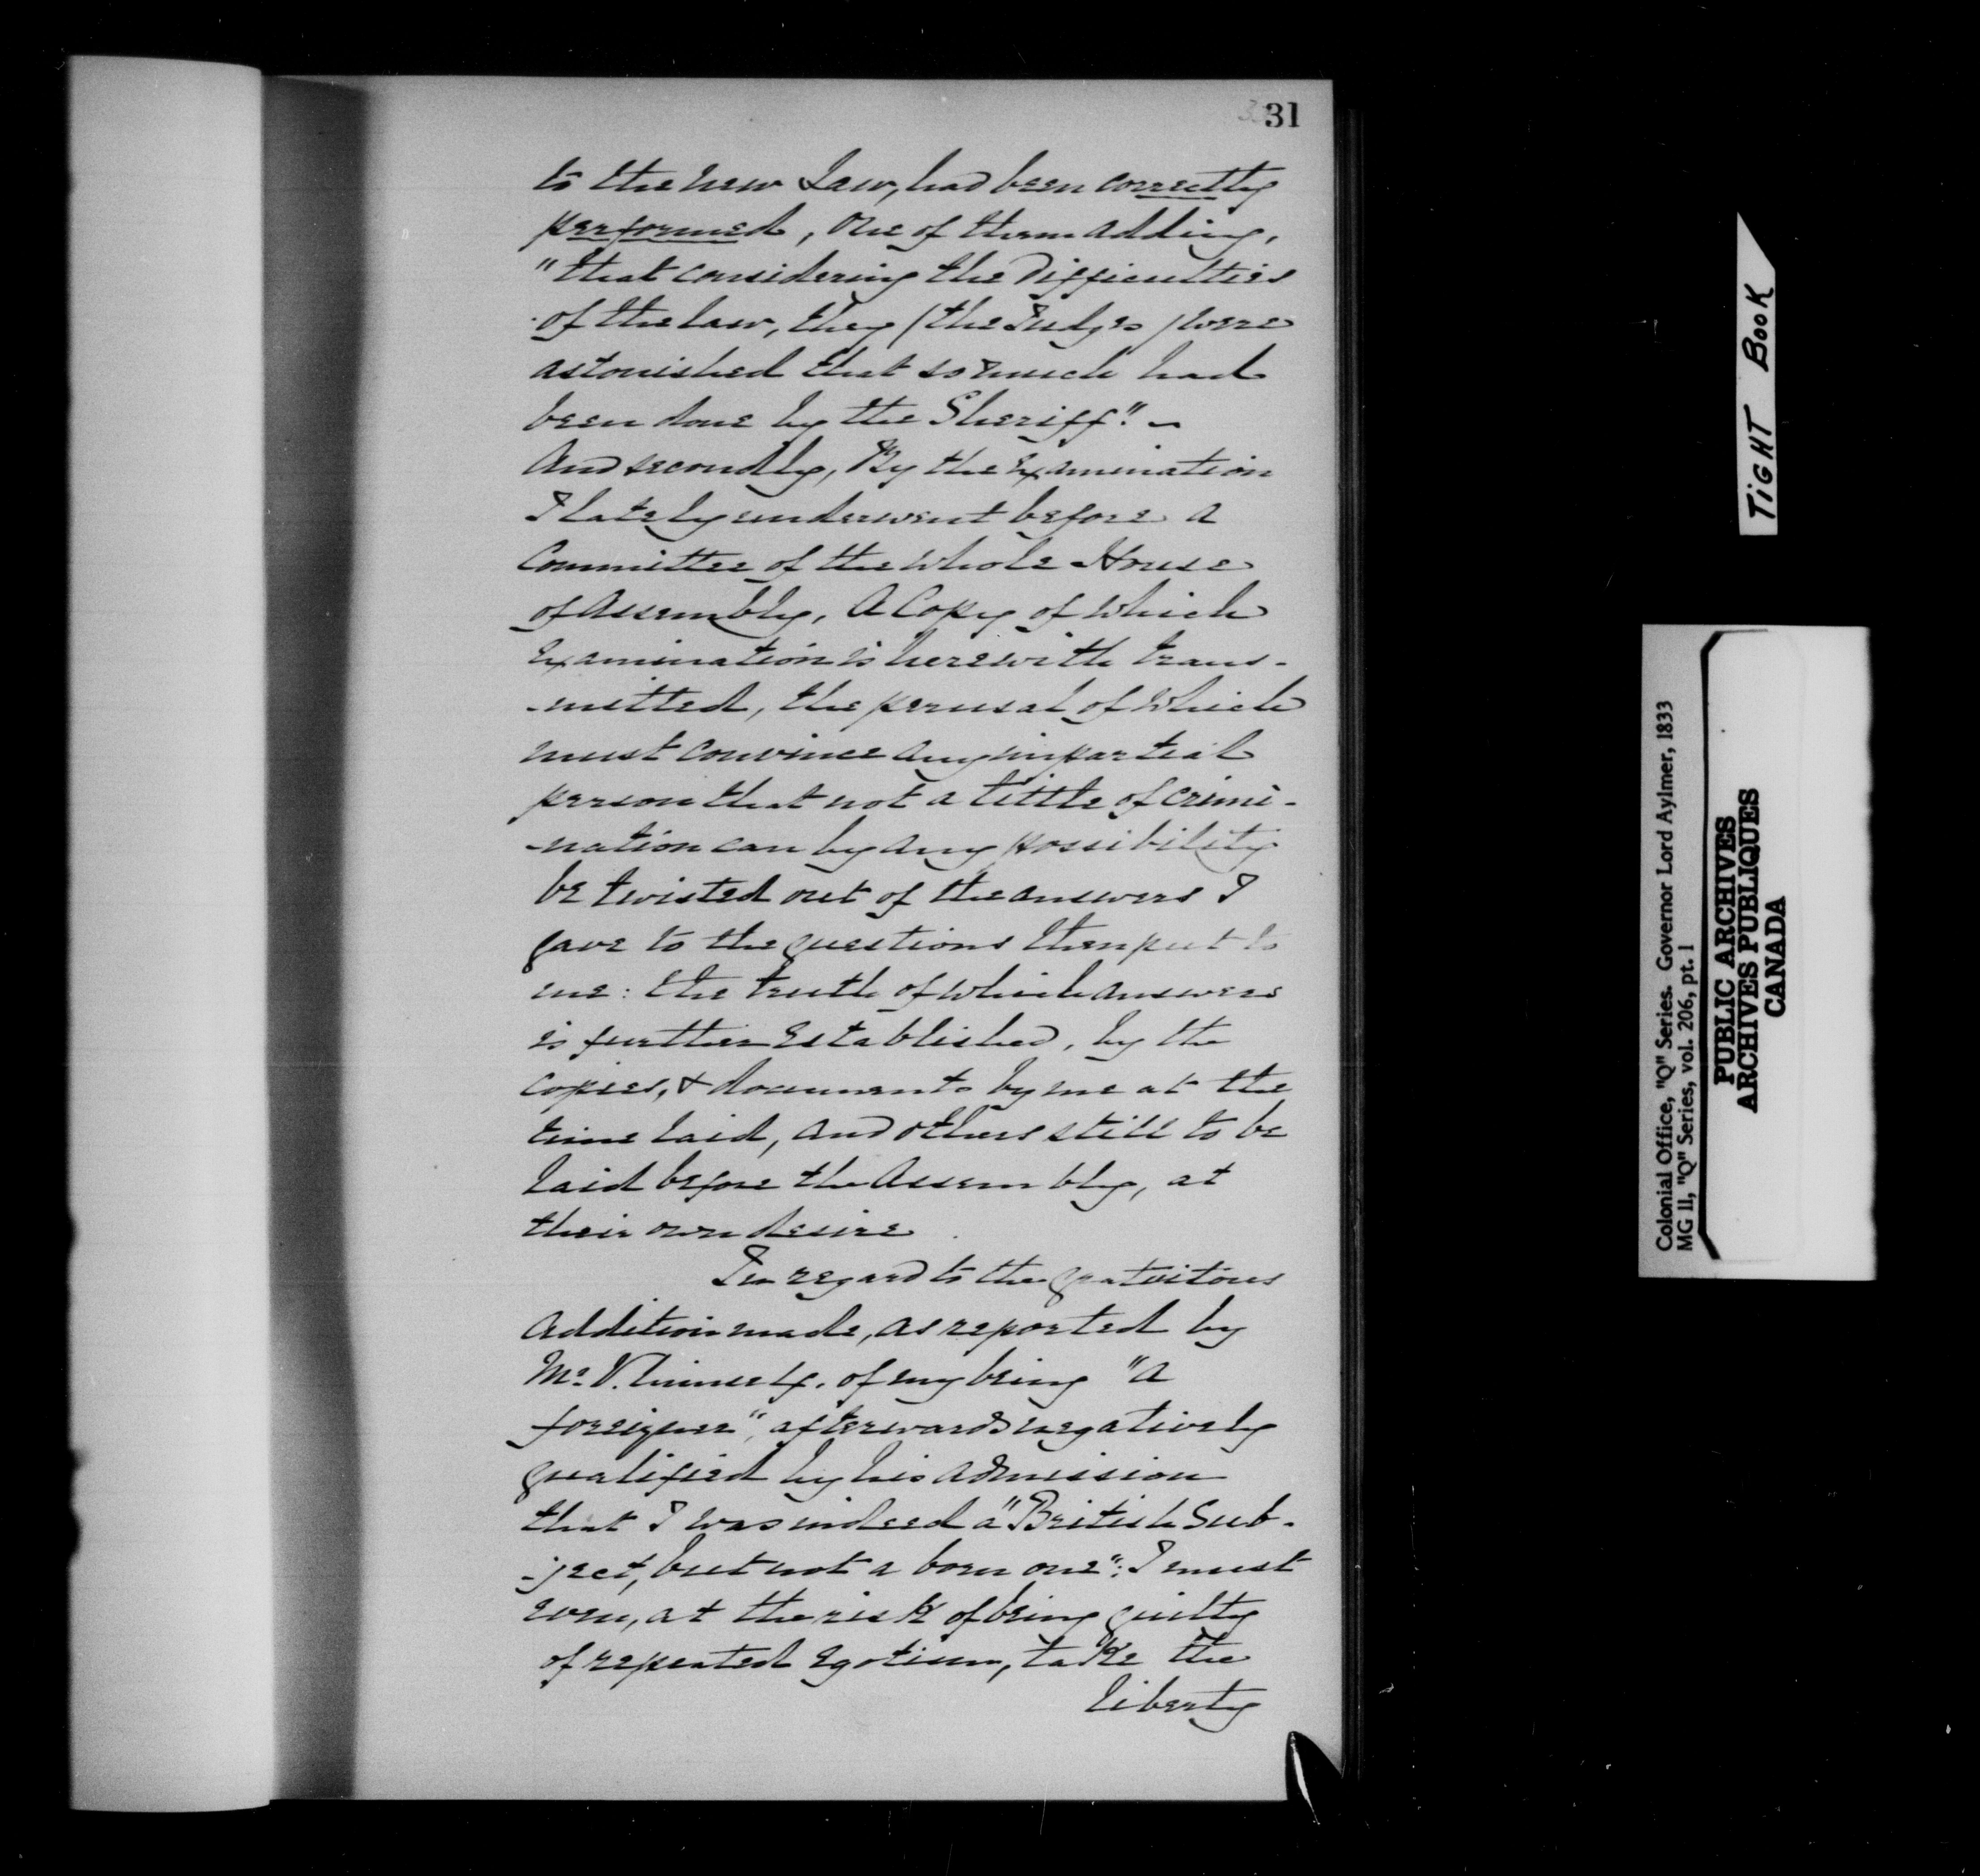 31
to the new Law, had been correctly
performed, One of them adding,
"that considering the Difficulties
of the law, they (the Judges) were
astonished that so much had
been done by the Sheriff." –
And secondly, By the Examination
I lately underwent before a
Committee of the Whole House
of Assembly, A Copy of Which
Examination is herewith trans-
-mitted, the perusal of Which
must convince any impartial
person that not a tittle of crimi-
-nation can by any possibility
be twisted out of the answers I
gave to the questions then put to
me: the truth of which answers
is further Established, by the
copies, & documents by me at the
time laid, and others still to be
laid before the Assembly, at
their own desire.
In regard to the gratuitous
addition made, as reported by
Mr. of my being "a
foreigner", afterwards negatively
qualified by his admission
that I was indeed a "British Sub-
-ject, but not a born one": I must
even, at the risk of being guilty
of repeated Egotism, take the
liberty
TIGHT BOOK
Colonial Office, "Q" Series. Governor Lord Aylmer, 1833
MG 11, "Q" Series, vol. 206, pt. 1
PUBLIC ARCHIVES
ARCHIVES PUBLIQUES
CANADA